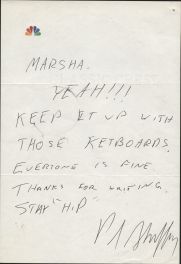 MARSHA.
YEAH!!!
KEEP IT UP WITH
THOSE KEYBOARDS.
EVERYONE IS FINE
THANKS FOR WRITING.
STAY "HIP"